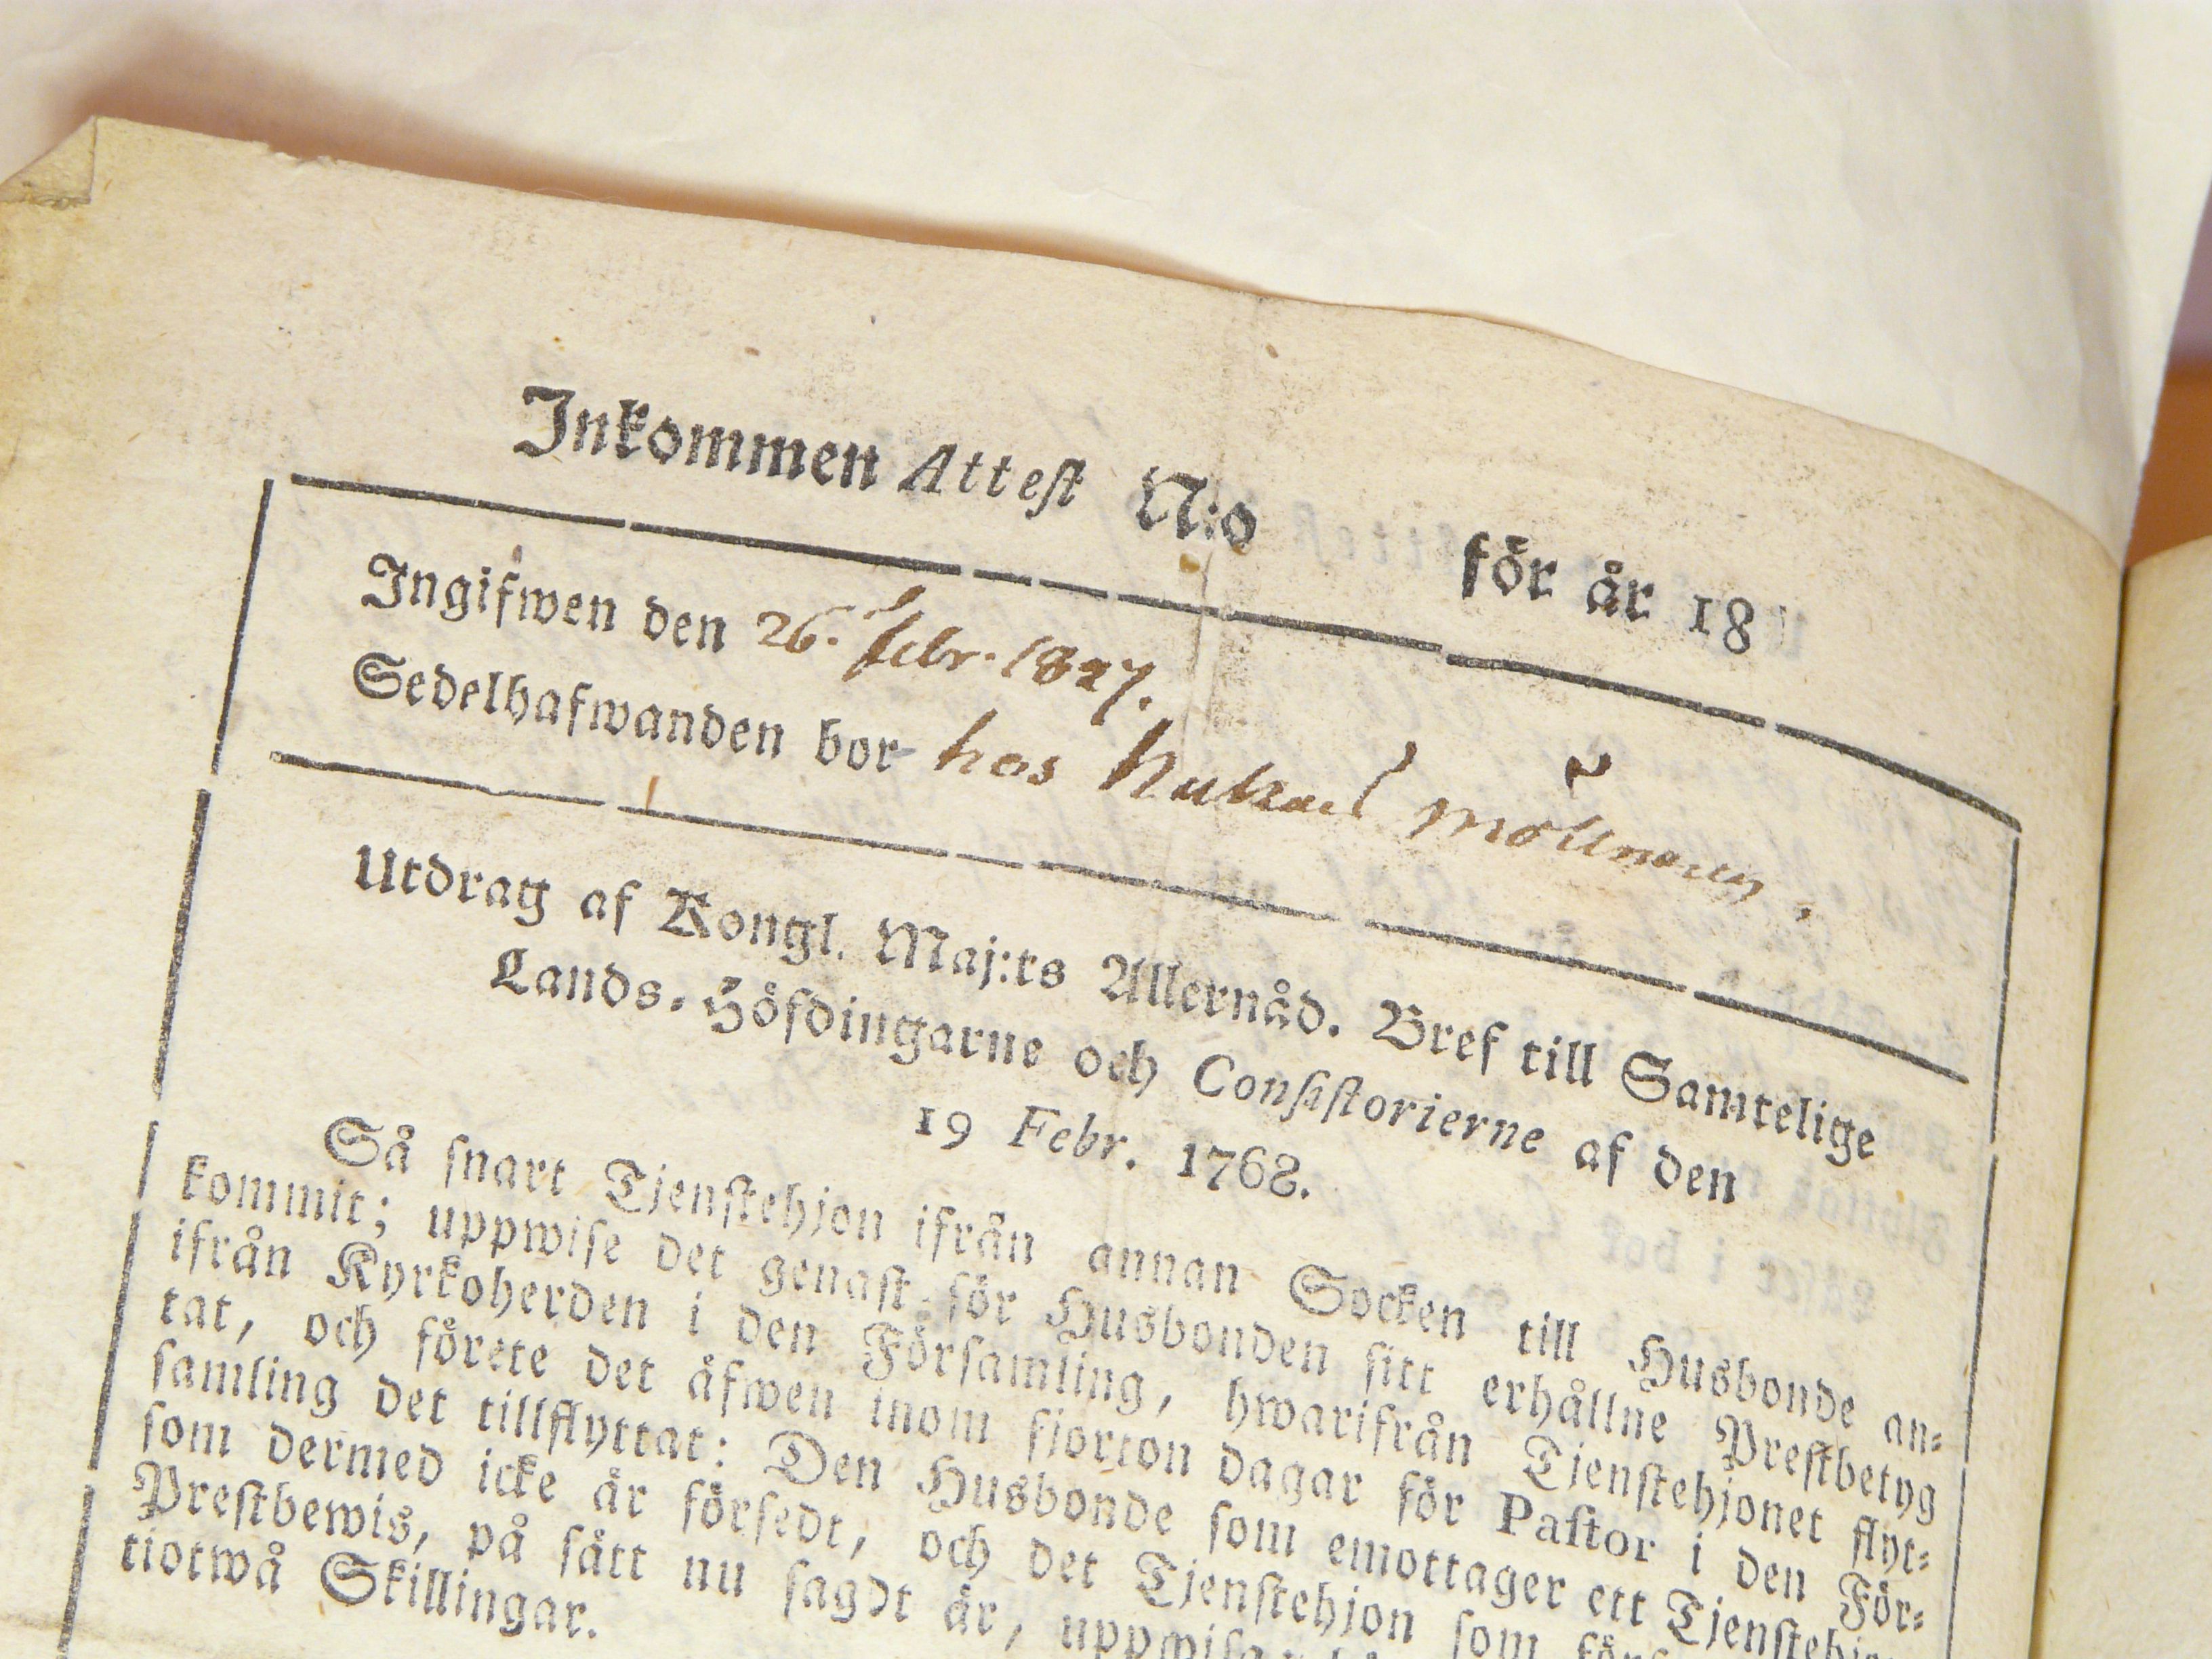 Inkommen Attest N:o för år 18
Ingifwen den 26. Febr. 1827.
Sedelhafwanden bor hos
Utdrag af Kongl. Maj:ts Allernåd. Bref till Samtelige
Lands-Höfdingarne och Consistorierne af den
19 Febr. 1768.
Så snart Tjenstehjon ifrån annan Socken till Husbonde an-
kommit; uppwise det genast för Husbonden sitt erhållne Prestbetyg
ifrån Kyrkoherden i den Församling, hwarifrån Tjenstehjonet flyt-
tat, och förete det äfwen inom fjorton dagar för Pastor i den För-
samling det tillflyttat: Den Husbonde som emottager ett
som dermed icke är försedt, och det Tjenstehjon som
Prestbewis, på sätt nu sagdt är,
tiotwå Skillingar.